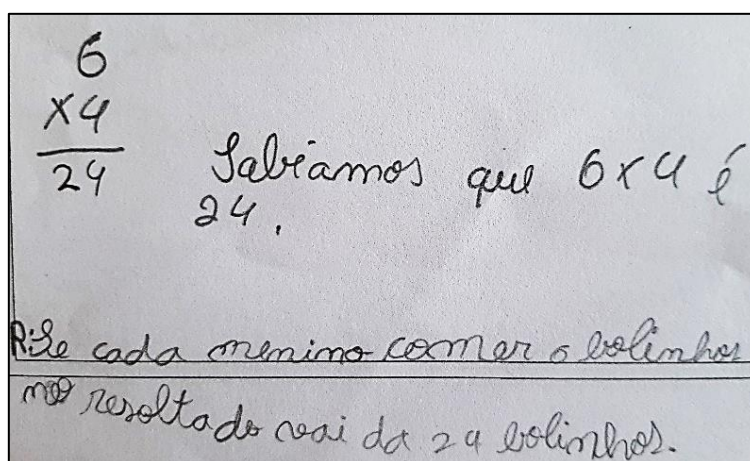 6
x4
24
Sabíamos que 6x4 é
24.
R: Se cada menino comer o bolinhos
no resoltado vai da 24 bolinhos.